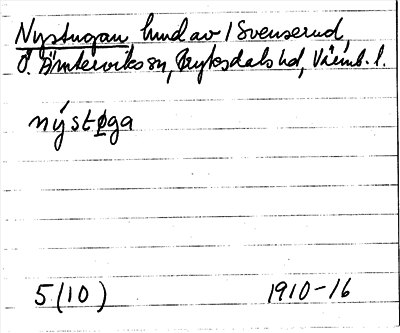 Nystugan hmd av 1 Svenserud,
Ö. Ämterviks sn, Fryksdals hd, Värml. l.
nýstøga
5 (10) 1910-16